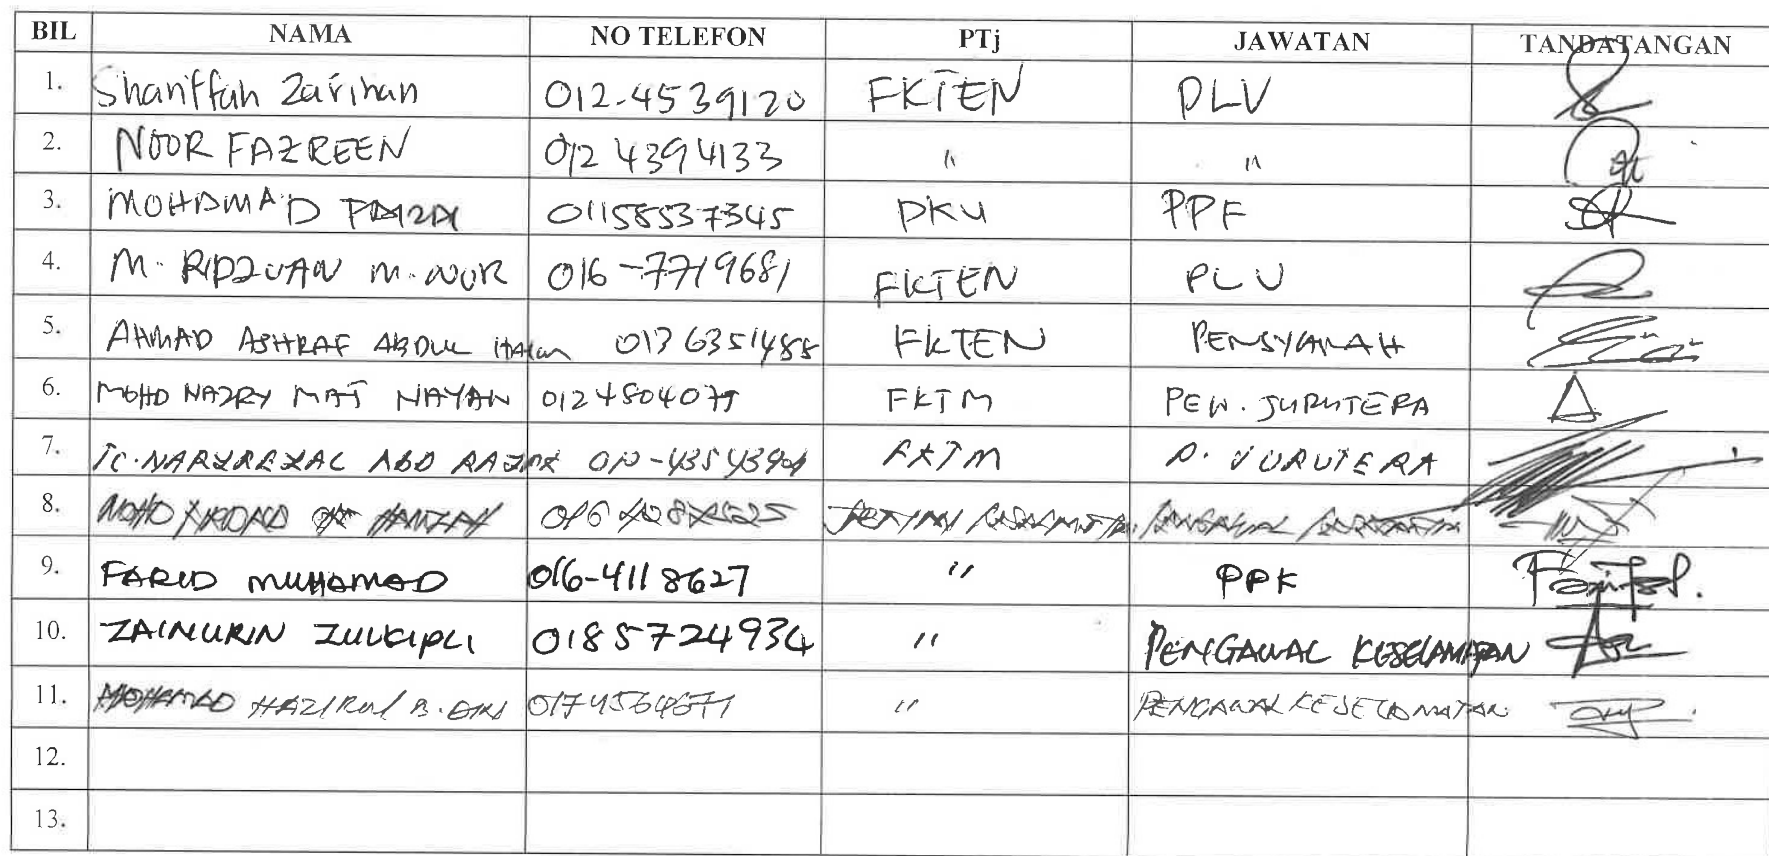 BIL NAMA NO TELEFON PTj JAWATAN TANDATANGAN
1. Shariffah Zarihan 012-4539120 FKTEN PLV
2. NOOR FAZREEN 012 4394133 " "
3. MOHAMAD FAIZAL 01158537345 PKU PPF
4. M. RIDZUAN M. NOR 016-7719681 FKTEN PLV
5. AHMAD ASHRAF ABDUL Halim 0136351488 FKTEN PENSYARAH
6. MOHD NAZRY MAT NAYAN 012 4804079 FKTM PEN. JURUTERA
7. ABD FKTM P. JURUTERA
8. MOHD HAMZAH
9. FARID MUHAMAD 016-4118627 " PPK
10. ZAINURIN ZULKIPLI 0185724934 " PENGAWAL KESELAMATAN
11. MOHAMAD HAZIRUL B. 0174564671 " PENGAWAL KESELAMATAN
12.
13.